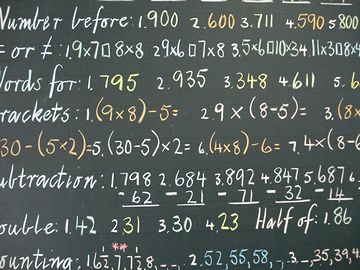 Number before: 1.900 2.600 3.711 4.590 5.800
= or ≠: 1.9x7□8x8 2.9x6□7x8 3.5x6□10x3 4.11x3□8x4
Words for: 1.795 2.935 3.348 4.611 5.6
rackets: 1.(9x8)-5= 2.9x(8-5)= 3.(8x
30-(5x2)= 5.(30-5)x2= 6.(4x8)-6= 7.4x(8-6
ubtraction: 1.798 2.684 3.892 4.847 5.687 6.
-62 -21 -71 -32 -14
ouble: 1.42 2.31 3.30 4.23 Half of: 1.86
**
ounting: 1.6½,7,7½,8,_ _ 2.52,55,58,_ 3._,35,39,4